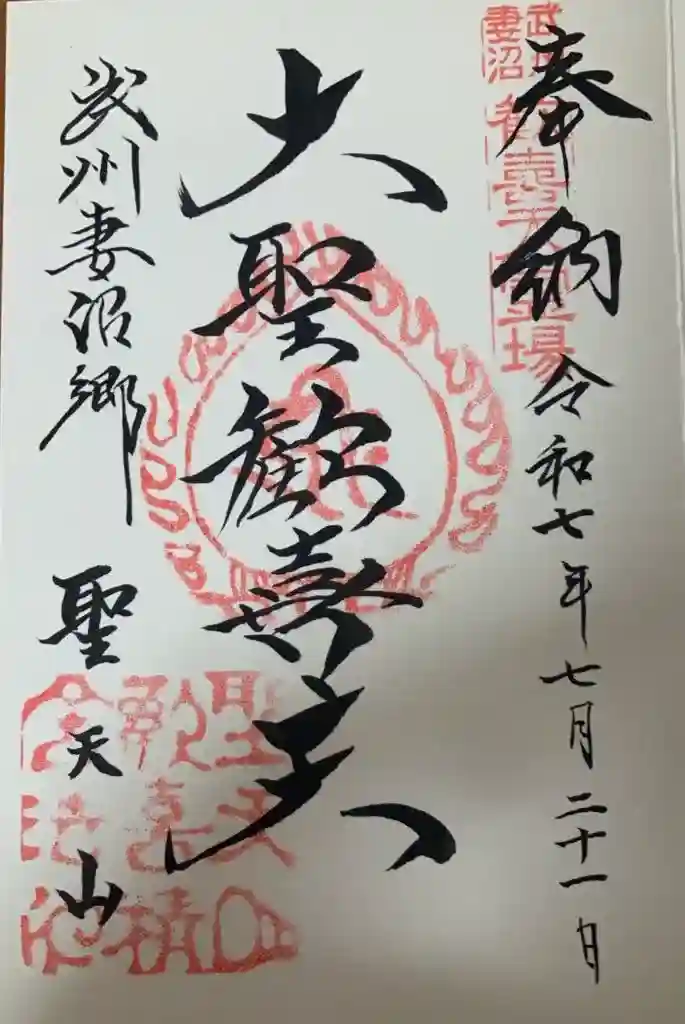 奉納 令和七年七月二十一日
武州妻沼
歓喜天霊場
大聖歓喜天
武州妻沼郷 聖天山